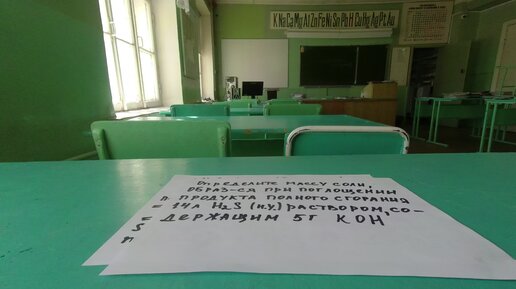 K Na Ca Mg Al Zn Fe Ni Sn Pb H Cu Hg Ag Pt Au
Определите массу соли,
образ-ся при поглощении
п. продукта полного сгорания
= 14л H₂S (н.у.) раствором, со-
= держащим 5г KOH